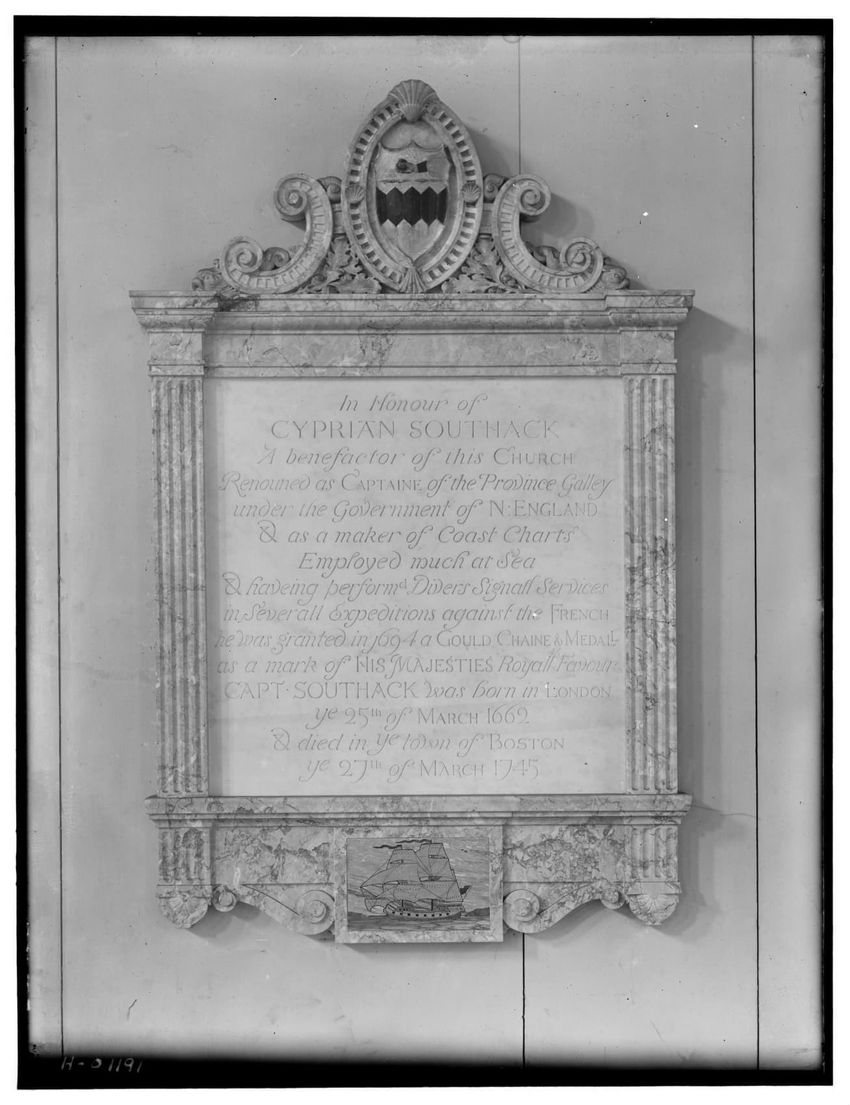 In Honour of
CYPRIAN SOUTHACK
A benefactor of this CHURCH
Renouned as CAPTAINE of the Province Galley
under the Government of N: ENGLAND
& as a maker of Coast Charts
Employed much at Sea
& haveing performd Divers Signall Services
in Severall Expeditions against the FRENCH
he was granted in 1694 a GOULD CHAINE & MEDALL
as a mark of HIS MAJESTIES Royall Favour
CAPT. SOUTHACK was born in LONDON
ye 25th of MARCH 1662
& died in ye town of BOSTON
ye 27th of MARCH 1745
H-01191